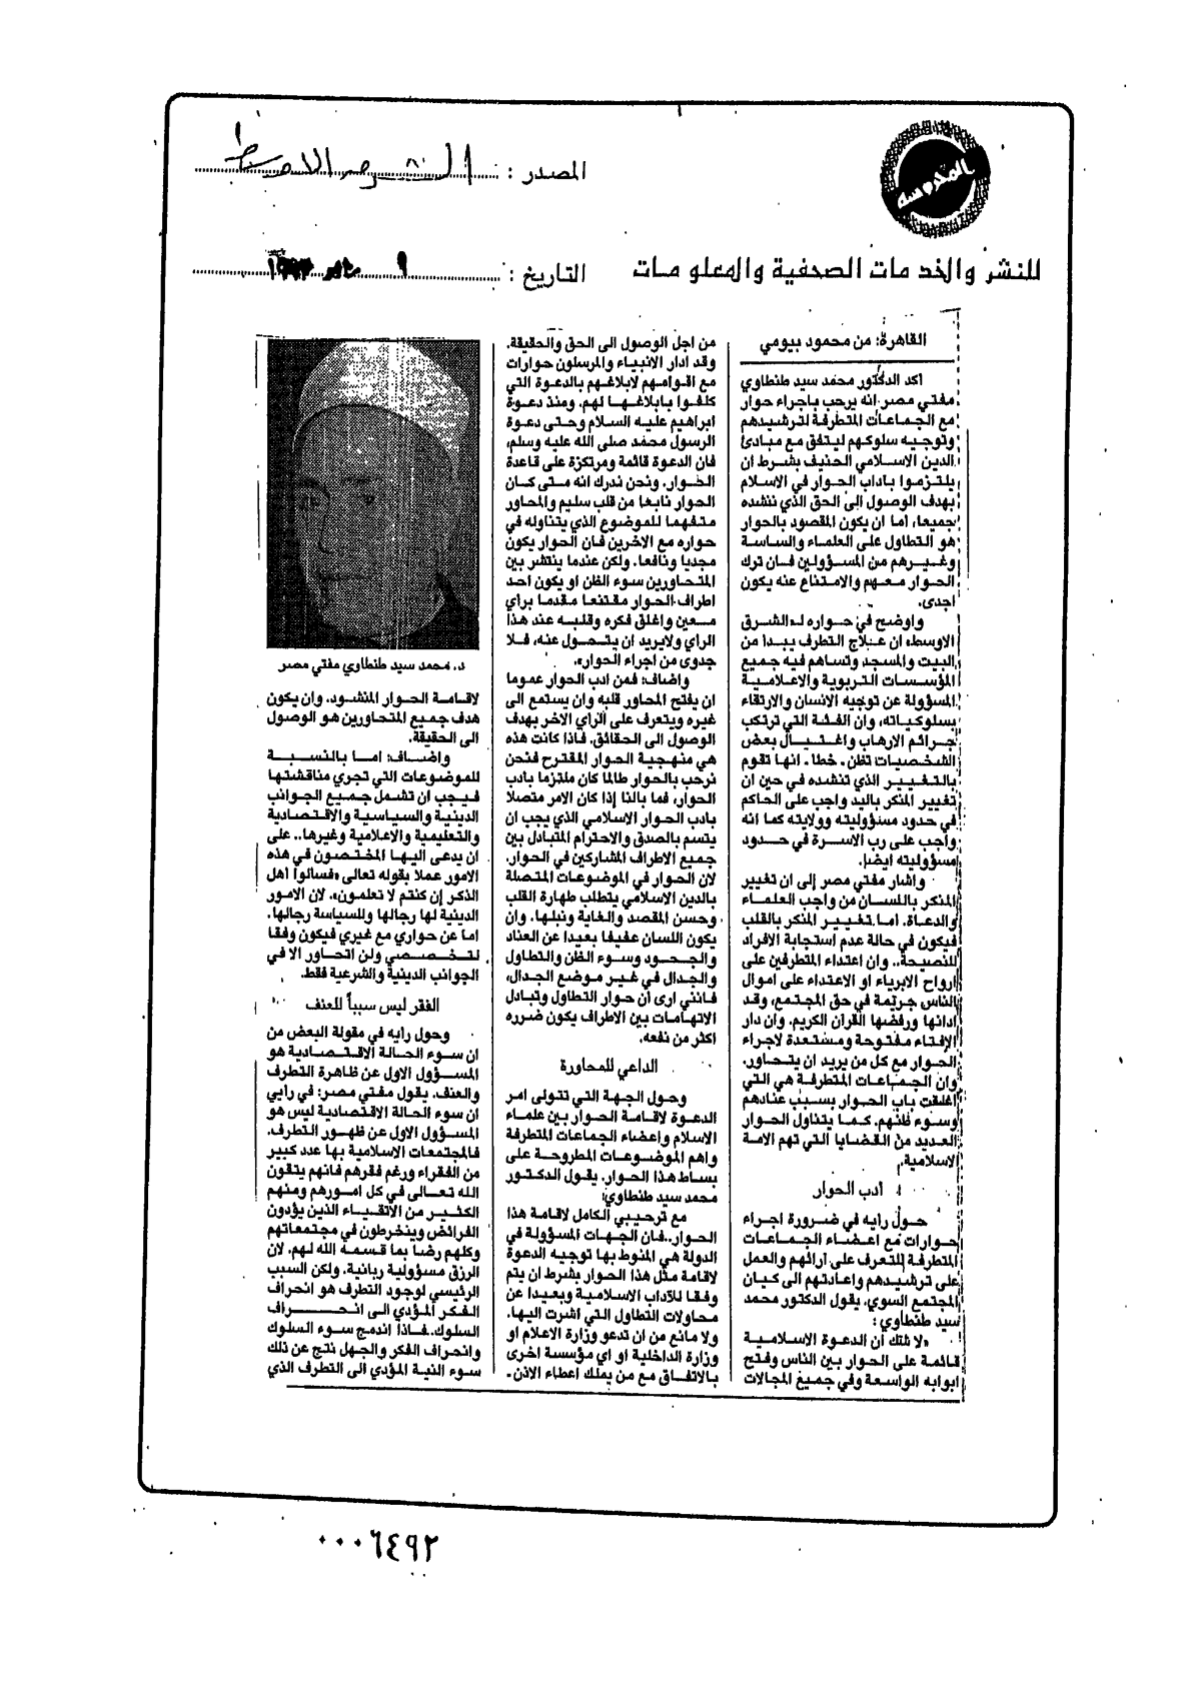 المحروسة
المصدر : الشرق الاوسط
للنشر والخدمات الصحفية والمعلومات
التاريخ : ٩
القاهرة: من محمود بيومي
اكد الدكتور محمد سيد طنطاوي
مفتي مصر انه يرحب باجراء حوار
مع الجماعات المتطرفة لترشيدهم
وتوجيه سلوكهم ليتفق مع مبادئ
الدين الاسلامي الحنيف بشرط ان
يلتزموا باداب الحوار في الاسلام
بهدف الوصول الى الحق الذي ننشده
جميعا، اما ان يكون المقصود بالحوار
هو التطاول على العلماء والساسة
وغيرهم من المسؤولين فان ترك
الحوار معهم والامتناع عنه يكون
اجدى.
واوضح في حواره لـ«الشرق
الاوسط» ان علاج التطرف يبدا من
البيت والمسجد وتساهم فيه جميع
المؤسسات التربوية والاعلامية
المسؤولة عن توجيه الانسان والارتقاء
بسلوكياته، وان الفئة التي ترتكب
جرائم الارهاب واغتيال بعض
الشخصيات تظن ـ خطا ـ انها تقوم
بالتغيير الذي تنشده في حين ان
تغيير المنكر باليد واجب على الحاكم
في حدود مسؤوليته وولايته كما انه
واجب على رب الاسرة في حدود
مسؤوليته ايضا.
واشار مفتي مصر إلى ان تغيير
المنكر باللسان من واجب العلماء
والدعاة، اما تغيير المنكر بالقلب
فيكون في حالة عدم استجابة الافراد
للنصيحة.. وان اعتداء المتطرفين على
ارواح الابرياء او الاعتداء على اموال
الناس جريمة في حق المجتمع، وقد
ادانها ورفضها القران الكريم. وان دار
الإفتاء مفتوحة ومستعدة لاجراء
الحوار مع كل من يريد ان يتحاور.
وان الجماعات المتطرفة هي التي
اغلقت باب الحوار بسبب عنادهم
وسوء ظنهم. كما يتناول الحوار
العديد من القضايا التي تهم الامة
الاسلامية.
أدب الحوار
حول رايه في ضرورة اجراء
حوارات مع اعضاء الجماعات
المتطرفة للتعرف على ارائهم والعمل
على ترشيدهم واعادتهم الى كيان
المجتمع السوي، يقول الدكتور محمد
سيد طنطاوي:
«لا شك ان الدعوة الاسلامية
قائمة على الحوار بين الناس وفتح
ابوابه الواسعة وفي جميع المجالات
من اجل الوصول الى الحق والحقيقة.
وقد ادار الانبياء والمرسلون حوارات
مع اقوامهم لابلاغهم بالدعوة التي
كلفوا بابلاغها لهم. ومنذ دعوة
ابراهيم عليه السلام وحتى دعوة
الرسول محمد صلى الله عليه وسلم،
فان الدعوة قائمة ومرتكزة على قاعدة
الحوار. ونحن ندرك انه متى كان
الحوار نابعا من قلب سليم والمحاور
متفهما للموضوع الذي يتناوله في
حواره مع الاخرين فان الحوار يكون
مجديا ونافعا. ولكن عندما ينتشر بين
المتحاورين سوء الظن او يكون احد
اطراف الحوار مقتنعا مقدما براي
معين واغلق فكره وقلبه عند هذا
الراي ولايريد ان يتحول عنه، فلا
جدوى من اجراء الحوار».
واضاف: فمن ادب الحوار عموما
ان يفتح المحاور قلبه وان يستمع الى
غيره ويتعرف على الراي الاخر بهدف
الوصول الى الحقائق. فاذا كانت هذه
هي منهجية الحوار المقترح فنحن
نرحب بالحوار طالما كان ملتزما بادب
الحوار، فما بالنا إذا كان الامر متصلا
بادب الحوار الاسلامي الذي يجب ان
يتسم بالصدق والاحترام المتبادل بين
جميع الاطراف المشاركين في الحوار.
لان الحوار في الموضوعات المتصلة
بالدين الاسلامي يتطلب طهارة القلب
وحسن المقصد والغاية ونبلها. وان
يكون اللسان عفيفا بعيدا عن العناد
والجحود وسوء الظن والتطاول
والجدال في غير موضع الجدال،
فانني ارى ان حوار التطاول وتبادل
الاتهامات بين الاطراف يكون ضرره
اكثر من نفعه.
الداعي للمحاورة
وحول الجهة التي تتولى امر
الدعوة لاقامة الحوار بين علماء
الاسلام واعضاء الجماعات المتطرفة
واهم الموضوعات المطروحة على
بساط هذا الحوار. يقول الدكتور
محمد سيد طنطاوي:
مع ترحيبي الكامل لاقامة هذا
الحوار.. فان الجهات المسؤولة في
الدولة هي المنوط بها توجيه الدعوة
لاقامة مثل هذا الحوار بشرط ان يتم
وفقا للآداب الاسلامية وبعيدا عن
محاولات التطاول التي اشرت اليها.
ولا مانع من ان تدعو وزارة الاعلام او
وزارة الداخلية او اي مؤسسة اخرى
بالاتفاق مع من يملك اعطاء الاذن.
د. محمد سيد طنطاوي مفتي مصر
لاقامة الحوار المنشود. وان يكون
هدف جميع المتحاورين هو الوصول
الى الحقيقة.
واضاف: اما بالنسبة
للموضوعات التي تجري مناقشتها
فيجب ان تشمل جميع الجوانب
الدينية والسياسية والاقتصادية
والتعليمية والاعلامية وغيرها.. على
ان يدعى اليها المختصون في هذه
الامور عملا بقوله تعالى «فسالوا اهل
الذكر إن كنتم لا تعلمون». لان الامور
الدينية لها رجالها وللسياسة رجالها.
اما عن حواري مع غيري فيكون وفقا
لتخصصي ولن اتحاور الا في
الجوانب الدينية والشرعية فقط.
الفقر ليس سبباً للعنف
وحول رايه في مقولة البعض من
ان سوء الحالة الاقتصادية هو
المسؤول الاول عن ظاهرة التطرف
والعنف. يقول مفتي مصر: في رايي
ان سوء الحالة الاقتصادية ليس هو
المسؤول الاول عن ظهور التطرف.
فالمجتمعات الاسلامية بها عدد كبير
من الفقراء ورغم فقرهم فانهم يتقون
الله تعالى في كل امورهم ومنهم
الكثير من الاتقياء الذين يؤدون
الفرائض وينخرطون في مجتمعاتهم
وكلهم رضا بما قسمه الله لهم. لان
الرزق مسؤولية ربانية. ولكن السبب
الرئيسي لوجود التطرف هو انحراف
الفكر المؤدي الى انحراف
السلوك.. فاذا اندمج سوء السلوك
وانحراف الفكر والجهل نتج عن ذلك
سوء النية المؤدي الى التطرف الذي
٠٠٠٦٤٩٢